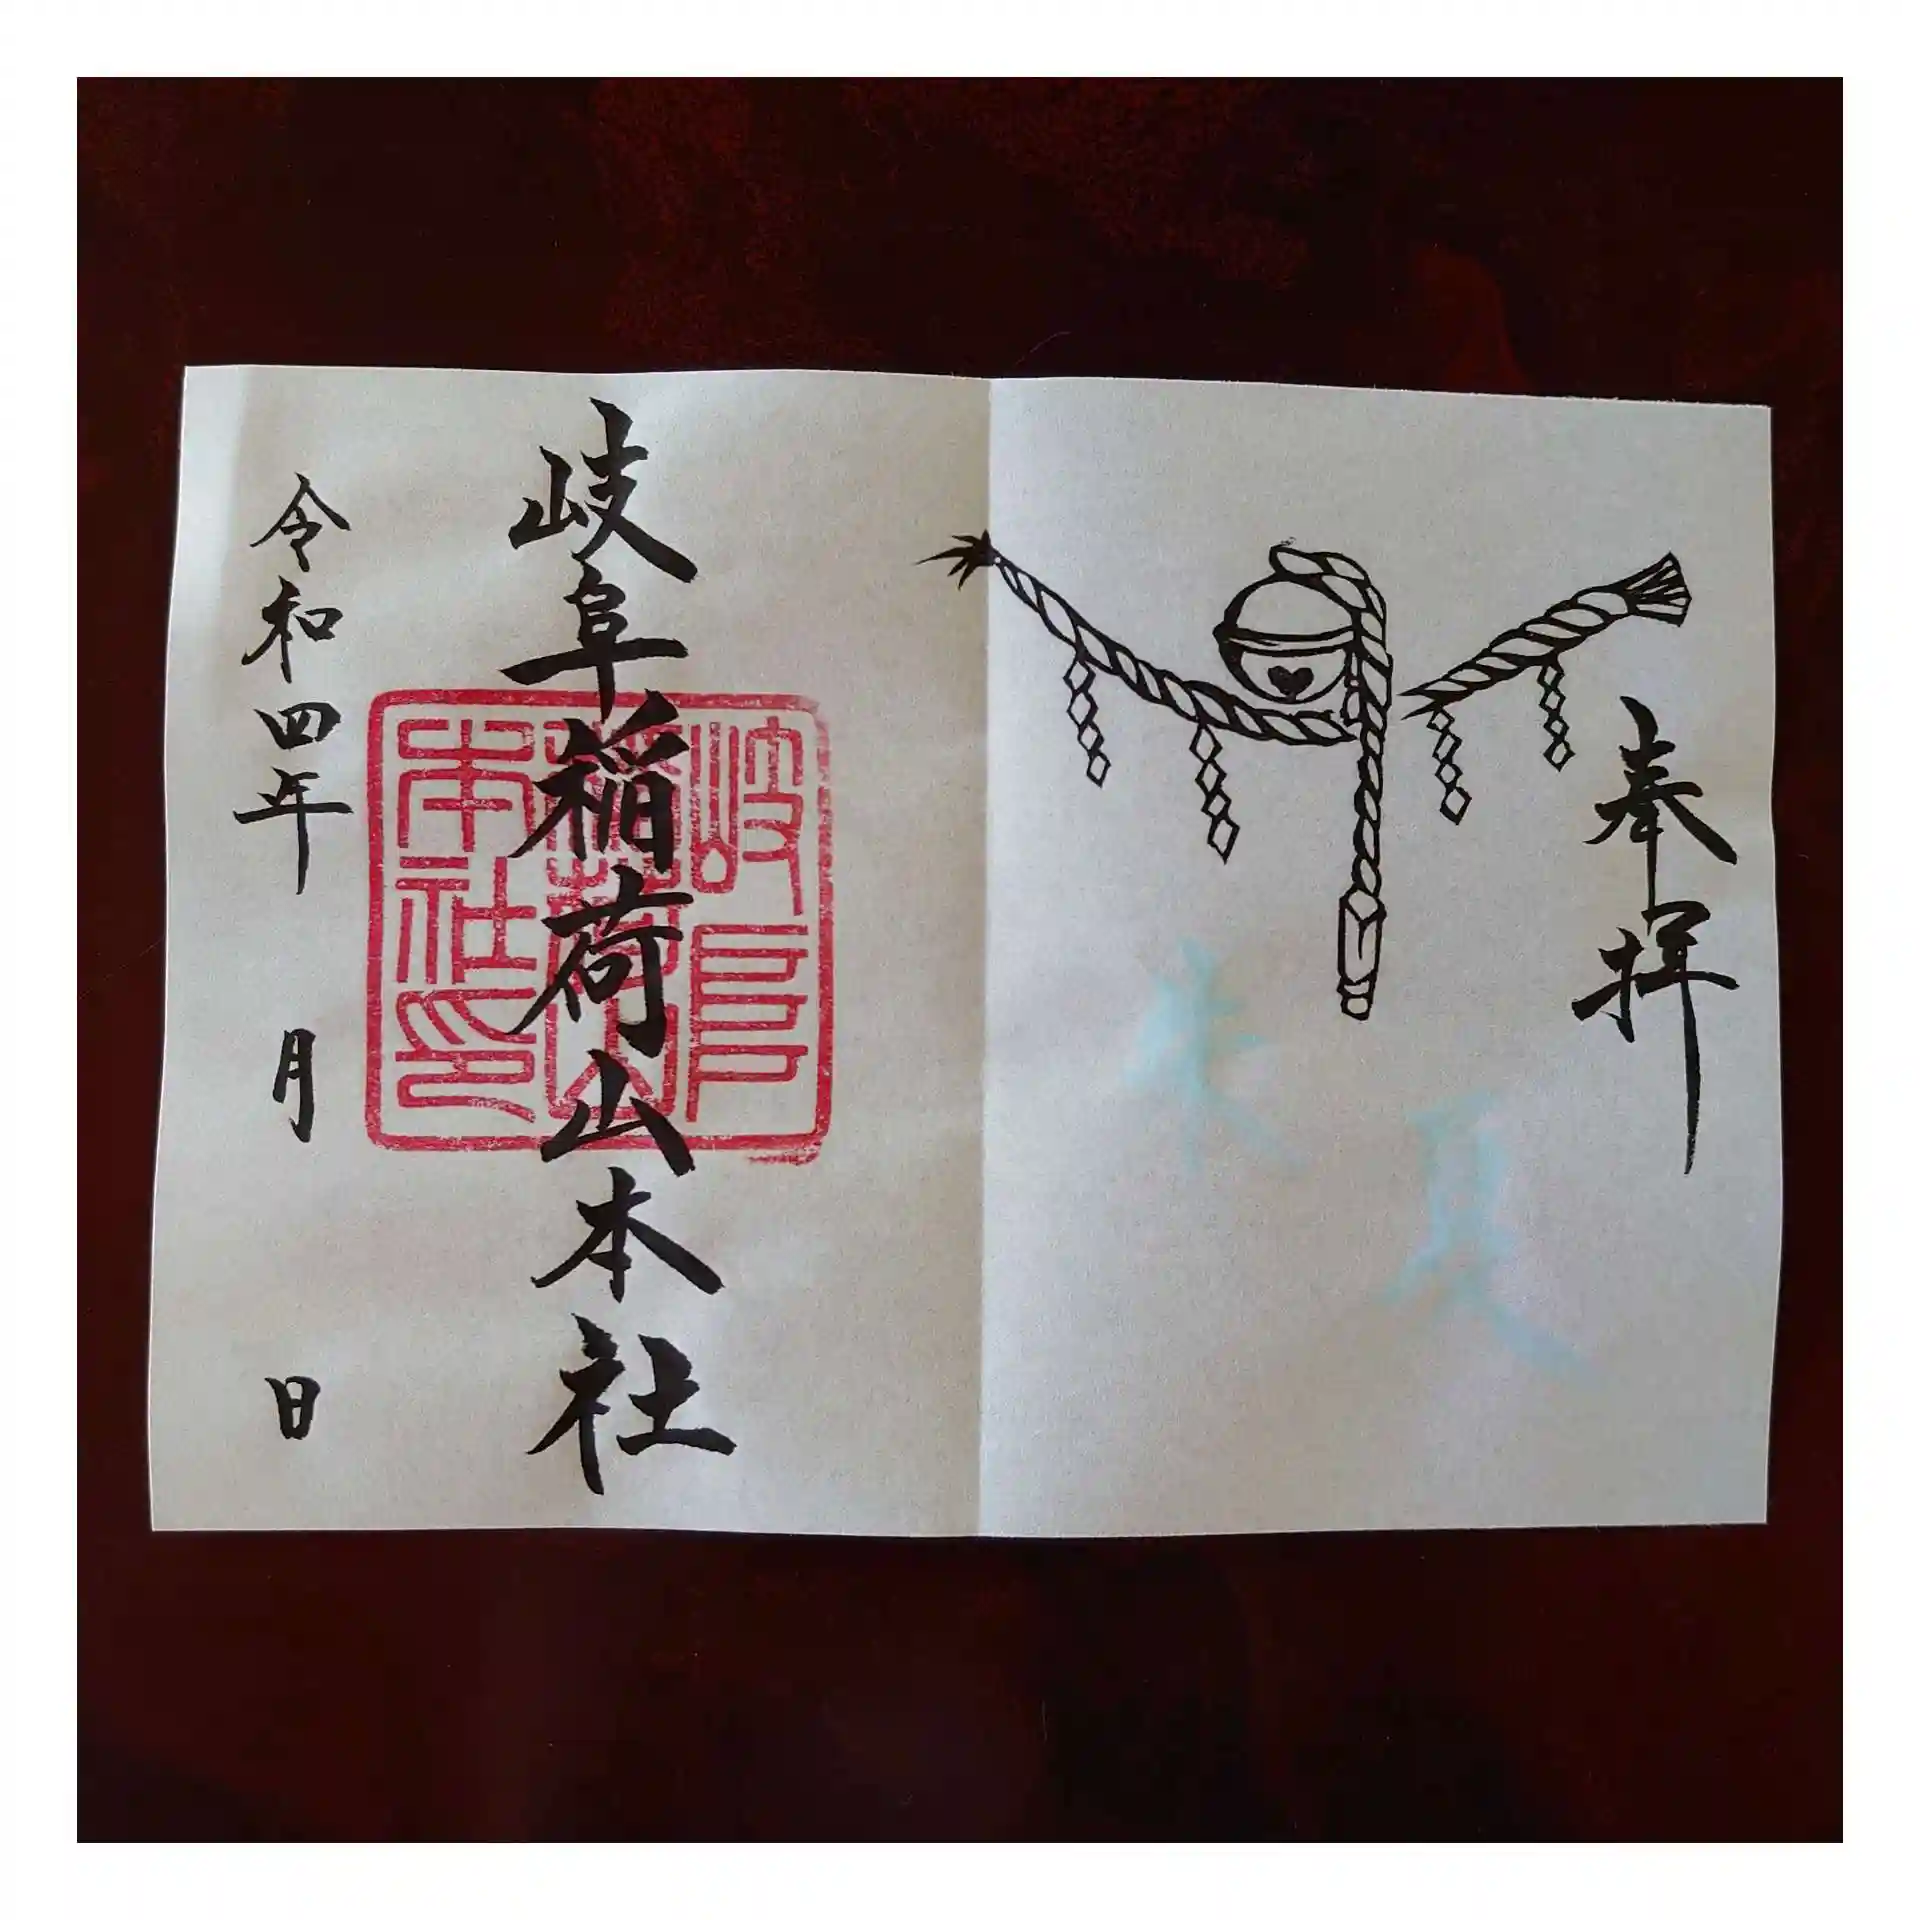 奉拝
夏
岐阜稲荷山本社
岐阜
稲荷山
本社印
令和四年 月 日